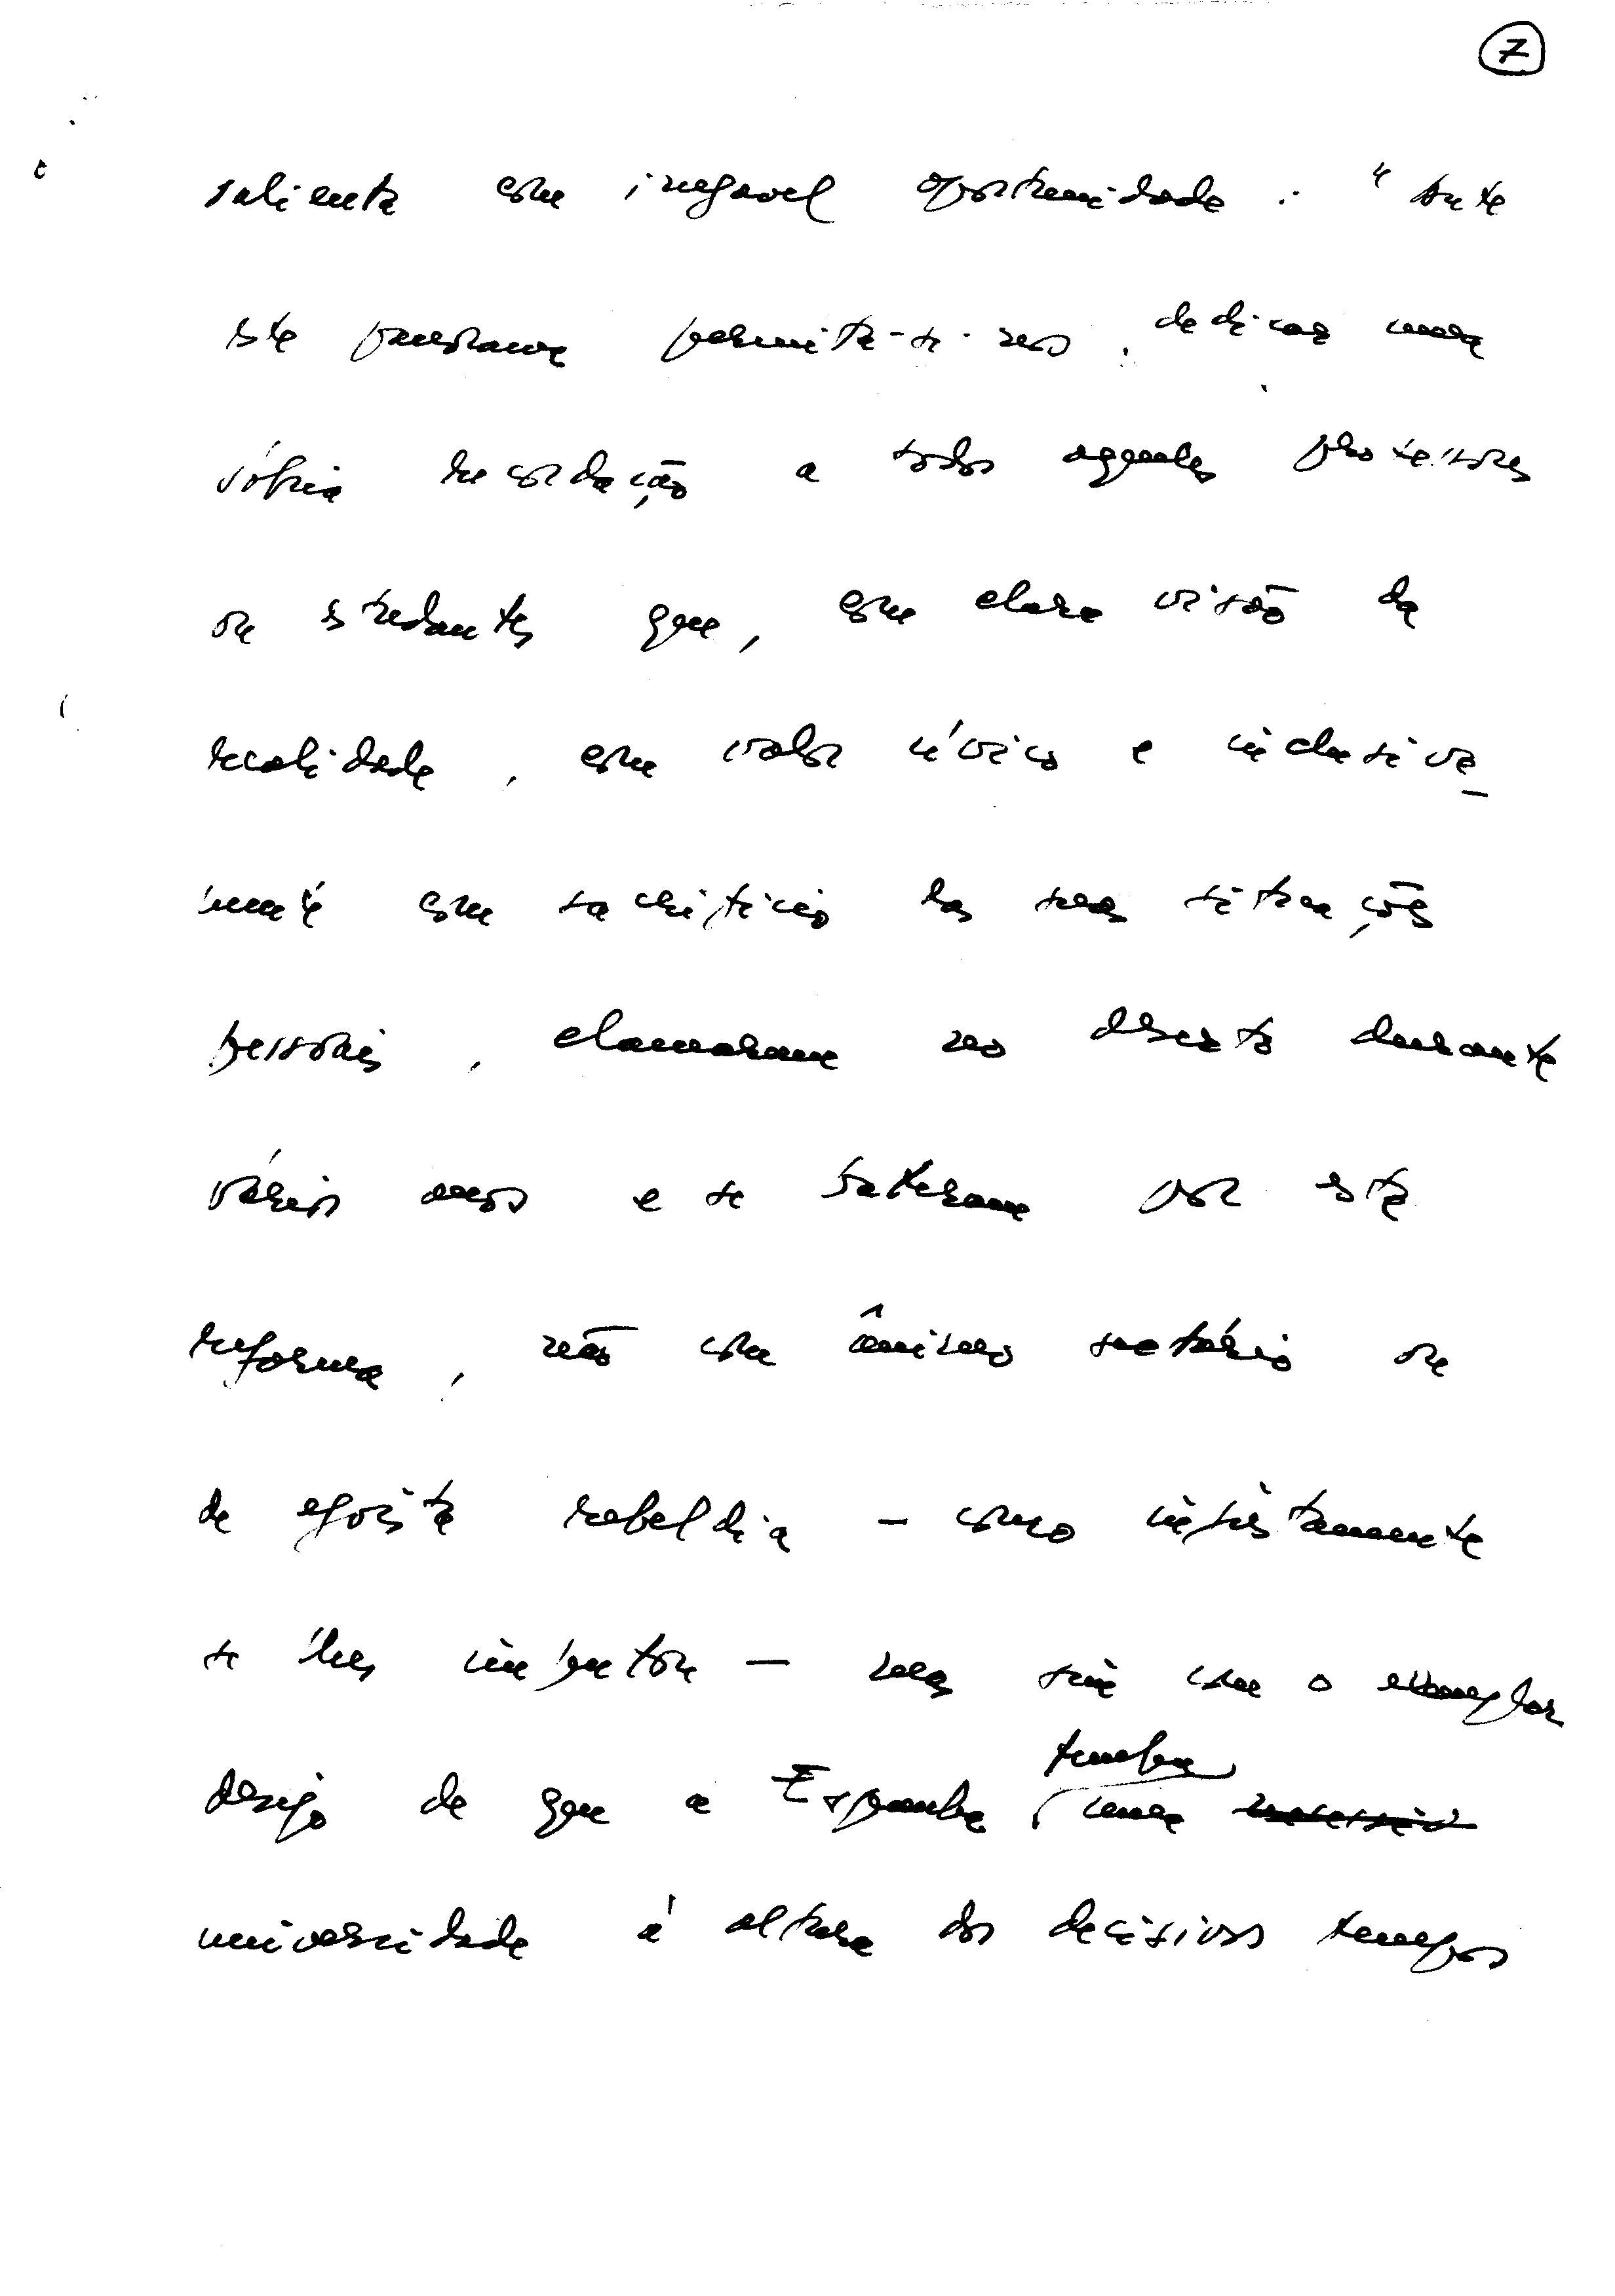 7
salienta com inegavel oportunidade : "Ante
este panorama permita-se-nos, dedicar uma
sóbria recordação a todos aqueles professores
ou estudantes que, com clara visão da
realidade, com valor cívico e inclusiva_
mente com sacrifício das suas situações
pessoais, clamaram no deserto durante
vários anos e se bateram por esta
reforma, não com ânimo sectário ou
de egoísta rebeldia - como injustamente
se lhes imputou — mas sim com o exemplar
desejo de que a Espanha tenha uma
universidade à altura dos decisivos tempos